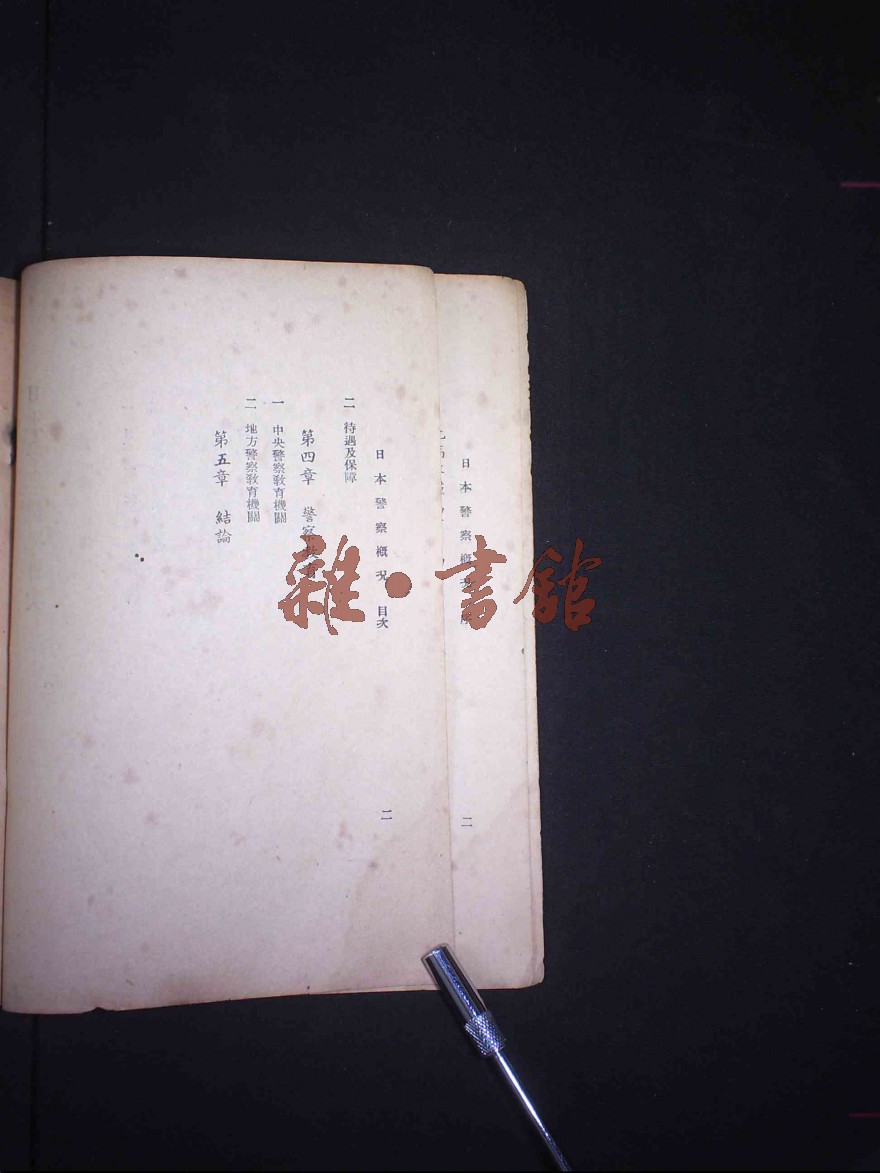 日本警察概况 序
二
日本警察概况 目次
二
二 待遇及保障
第四章 警察教育
一 中央警察教育機關
二 地方警察教育機關
第五章 結論
雜·書館